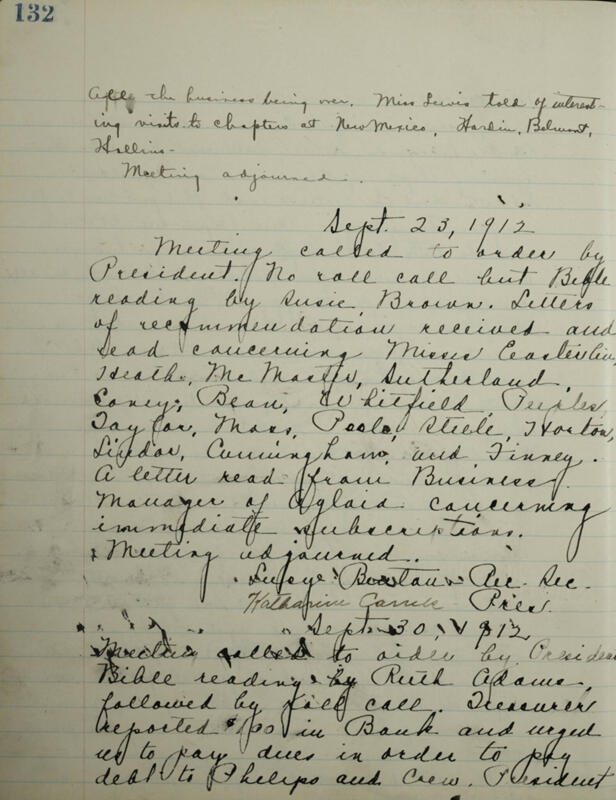 132
After the business being over, Miss Lewis told of interest-
ing visits to chapters at New Mexico, Hardin, Belmont,
Hollins-
Meeting adjourned.
Sept. 23, 1912
Meeting called to order by
President. No roll call but Bible
reading by Susie Brown. Letters
of recommendation received and
read concerning Misses Easterlin,
Heath, McMaster, Sutherland,
Coney, Bean, Whitfield, Peeples
Taylor, Moss, Poole, Steele, Horton,
Lindor, Cunningham, and Finney.
A letter read from Business
Manager of Aglaia concerning
immediate subscriptions.
Meeting adjourned.
Boatan Rec. Sec.
Katharine Pres.
Sept. 30, 1912
Meeting called to order by President
Bible reading by Ruth Adams,
followed by roll call. Treasurer
reported $100 in Bank and urged
us to pay dues in order to pay
debt to Phelips and Crew. President